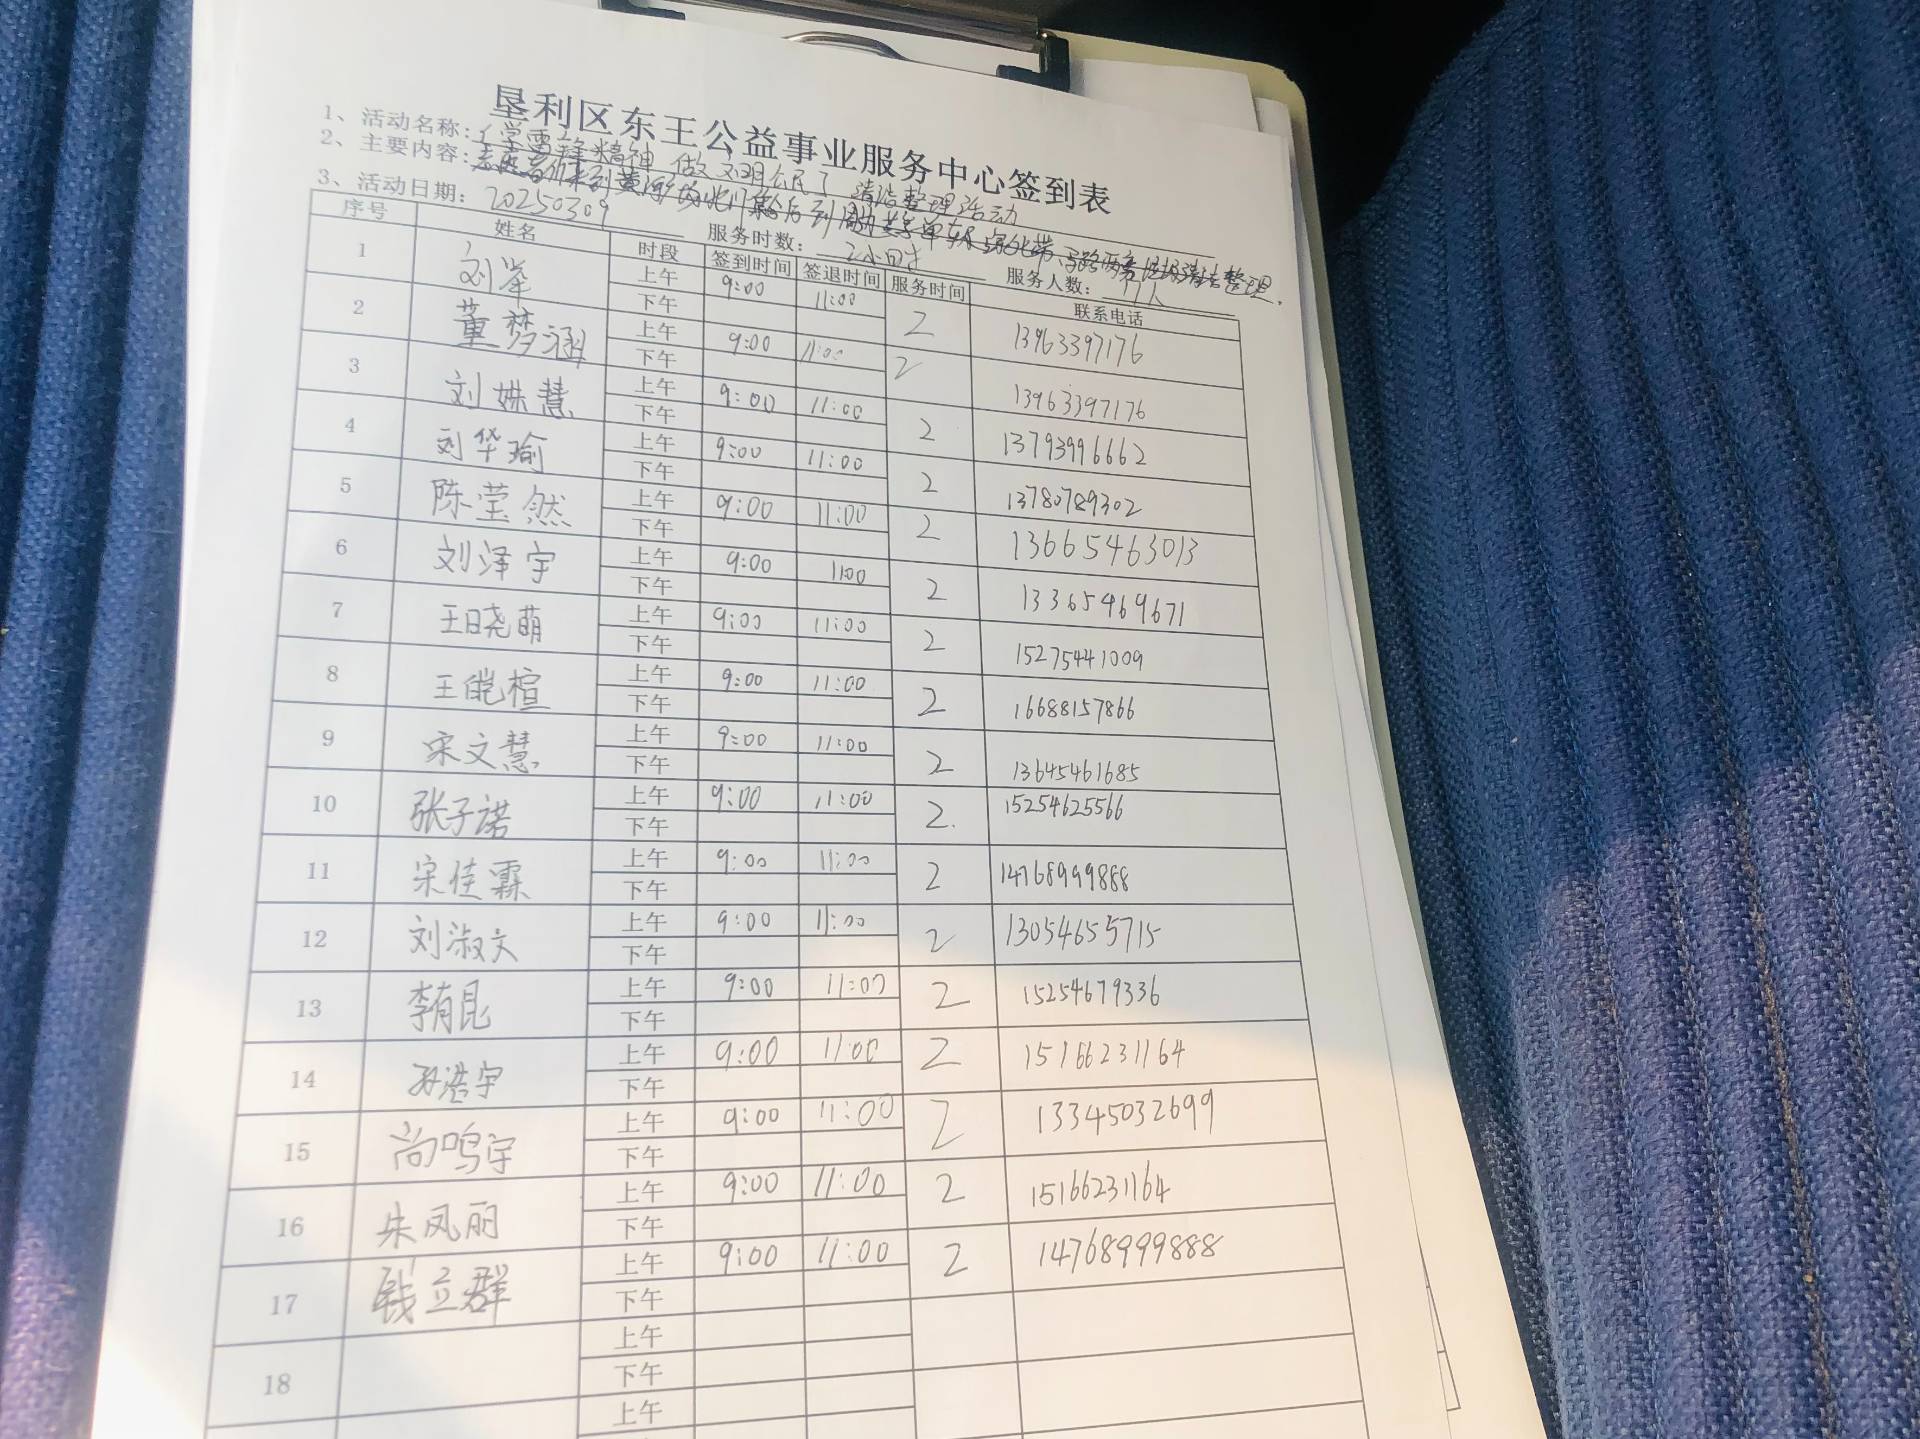 垦利区东王公益事业服务中心签到表
1、活动名称:学雷锋精神 做文明公民 清洁整理活动
2、主要内容:
3、活动日期: 20250309 服务时数: 2小时 服务人数: 17人
序号 姓名 时段 签到时间 签退时间 服务时间 联系电话
1 刘举 上午 9:00 11:00 2 13963397176
下午
2 董梦涵 上午 9:00 11:00 2 13963397176
下午
3 刘姝慧 上午 9:00 11:00 2 13793996662
下午
4 刘华瑜 上午 9:00 11:00 2 13780789302
下午
5 陈莹然 上午 9:00 11:00 2 13665463013
下午
6 刘泽宇 上午 9:00 1100 2 13365469671
下午
7 王晓萌 上午 9:00 11:00 2 15275441009
下午
8 王皝楦 上午 9:00 11:00 2 16688157866
下午
9 宋文慧 上午 9:00 11:00 2 13645461685
下午
10 张子诺 上午 9:00 11:00 2. 15254625566
下午
11 宋佳霖 上午 9:00 11:00 2 14768999888
下午
12 刘淑文 上午 9:00 11:00 2 13054655715
下午
13 李有昆 上午 9:00 11:00 2 15254679336
下午
14 孙浩宇 上午 9:00 11:00 2 15166231164
下午
15 尚鸣宇 上午 9:00 11:00 2 13345032699
下午
16 朱凤丽 上午 9:00 11:00 2 15166231164
下午
17 钱立群 上午 9:00 11:00 2 14768999888
下午
18 上午
下午
上午